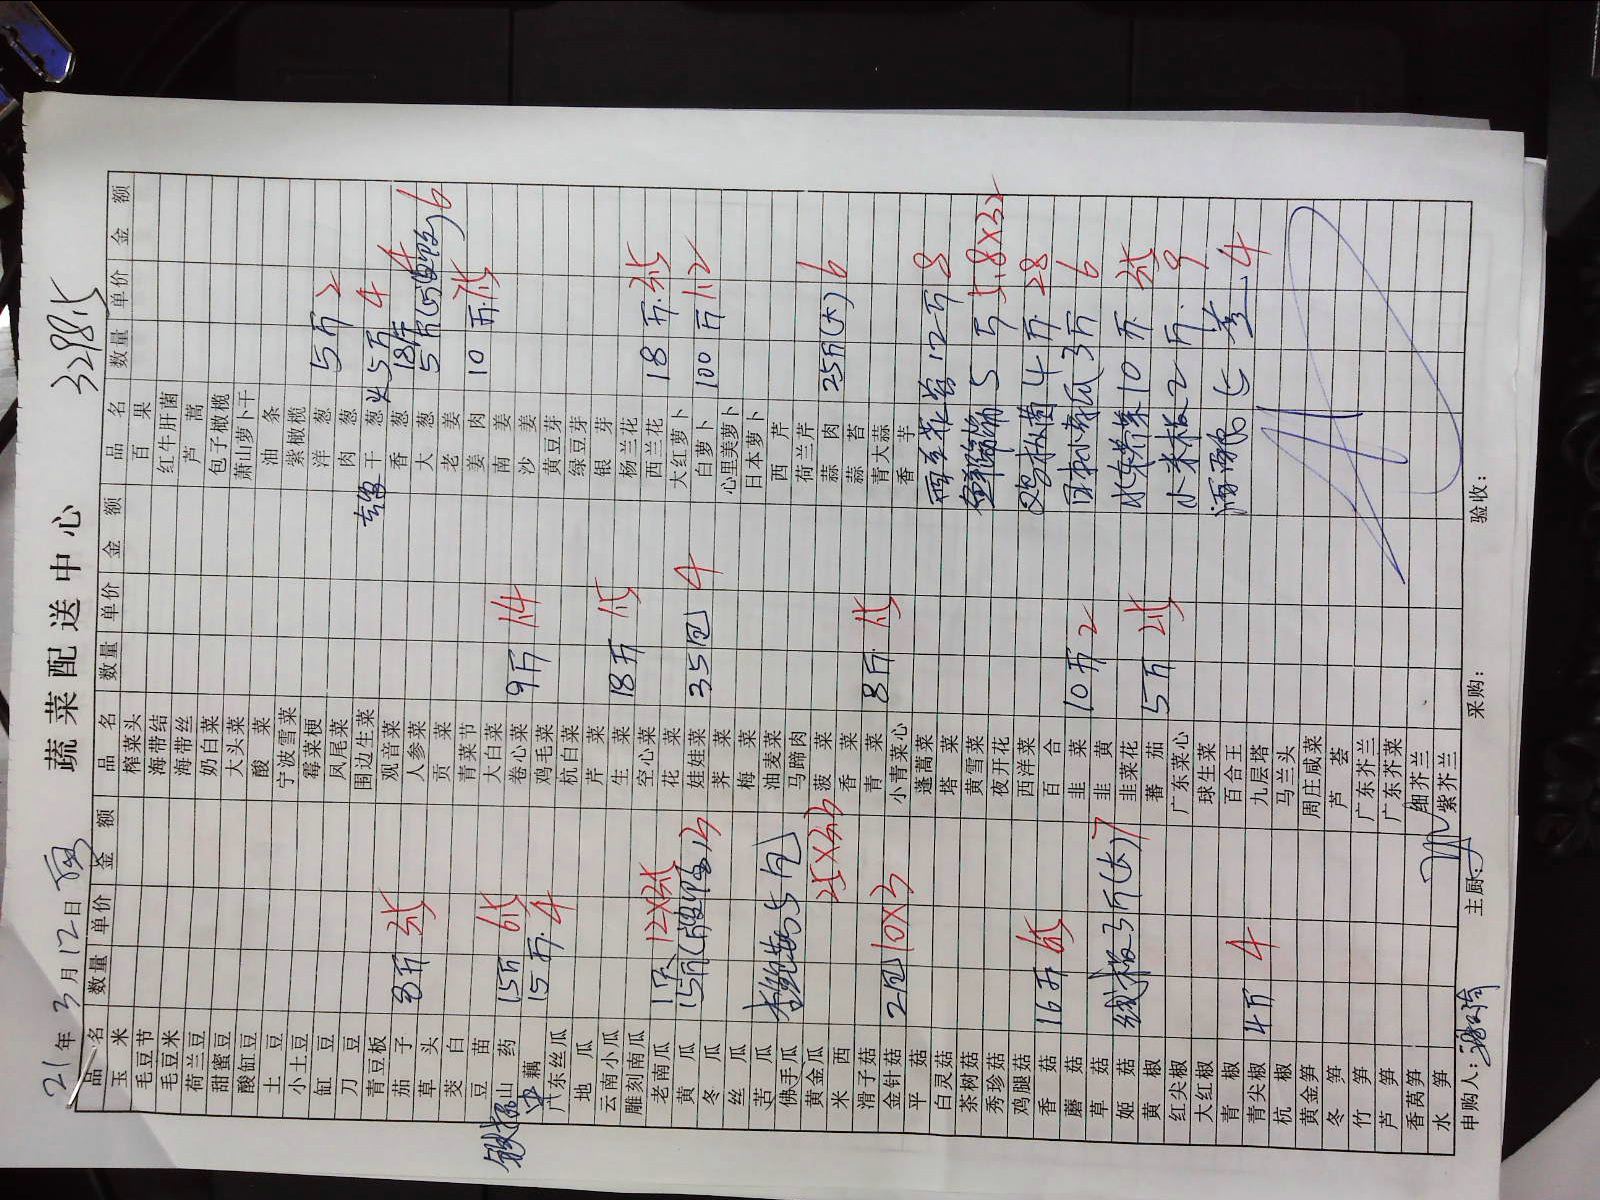 蔬菜配送中心
21年3月12日
3298.5
品名 数量 单价 金额
玉米
毛豆节
毛豆米
荷兰豆
甜蜜豆
酸缸豆
土豆
小土豆
缸豆
刀豆
青豆板
茄子 8斤 3.5
草头
茭白
豆苗
铁棍山药 15斤 6.5
中藕 15斤 4
广东丝瓜
地瓜
云南小瓜
雕刻南瓜
老南瓜 1只 12×3.5
黄瓜 15斤
冬瓜
丝瓜
苦瓜
佛手瓜 5包
黄金瓜 25×3
米西
滑子菇
金针菇 2包 10×3
平菇
白灵菇
茶树菇
秀珍菇
鸡腿菇
香菇 16斤 6.5
蘑菇
草菇
姬菇 线椒3斤(大) 7
黄椒
红尖椒
大红椒
青椒
青尖椒 4斤 4
杭椒
黄金笋
冬笋
竹笋
芦笋
香莴笋
水笋
品名 数量 单价 金额
榨菜头
海带结
海带丝
奶白菜
大头菜
酸菜
宁波雪菜
霉菜梗
凤尾菜
围边生菜
观音菜
人参菜
贡菜
青菜节
大白菜
卷心菜 9斤 1.4
鸡毛菜
杭白菜
芹菜
生菜 18斤 1.5
空心菜
花菜
娃娃菜 35包 4
荠菜
梅菜
油麦菜
马蹄肉
菠菜
香菜
青菜 8斤 1.5
小青菜心
蓬蒿菜
塔菜
黄雪菜
夜开花
西洋菜
百合
韭菜 10斤 2
韭黄
韭菜花
蕃茄 5斤 2.5
广东菜心
球生菜
百合王
九层塔
马兰头
周庄咸菜
芦荟
广东芥兰
广东芥菜
细芥兰
紫芥兰
品名 数量 单价 金额
百果
红牛肝菌
芦蒿
包子橄榄
萧山萝卜干
油条
紫橄榄
洋葱 15斤 2
肉葱
干葱 5斤 4
香葱 18斤 4
大葱 5斤 6
老姜
姜肉 10斤 7.5
南姜
沙姜
黄豆芽
绿豆芽
银芽
杨兰花
西兰花 18斤 3.5
大红萝卜
白萝卜 100斤 1.2
心里美萝卜
日本萝卜
西芹
荷兰芹
蒜肉 25斤(大) 6
蒜苔
青大蒜
香芋
12斤 8
5斤 5.8×32
4斤 28
日本小青瓜3斤 6
水东芥菜10斤 3.5
小米椒2斤 9
4
申购人:
主厨:
采购:
验收: